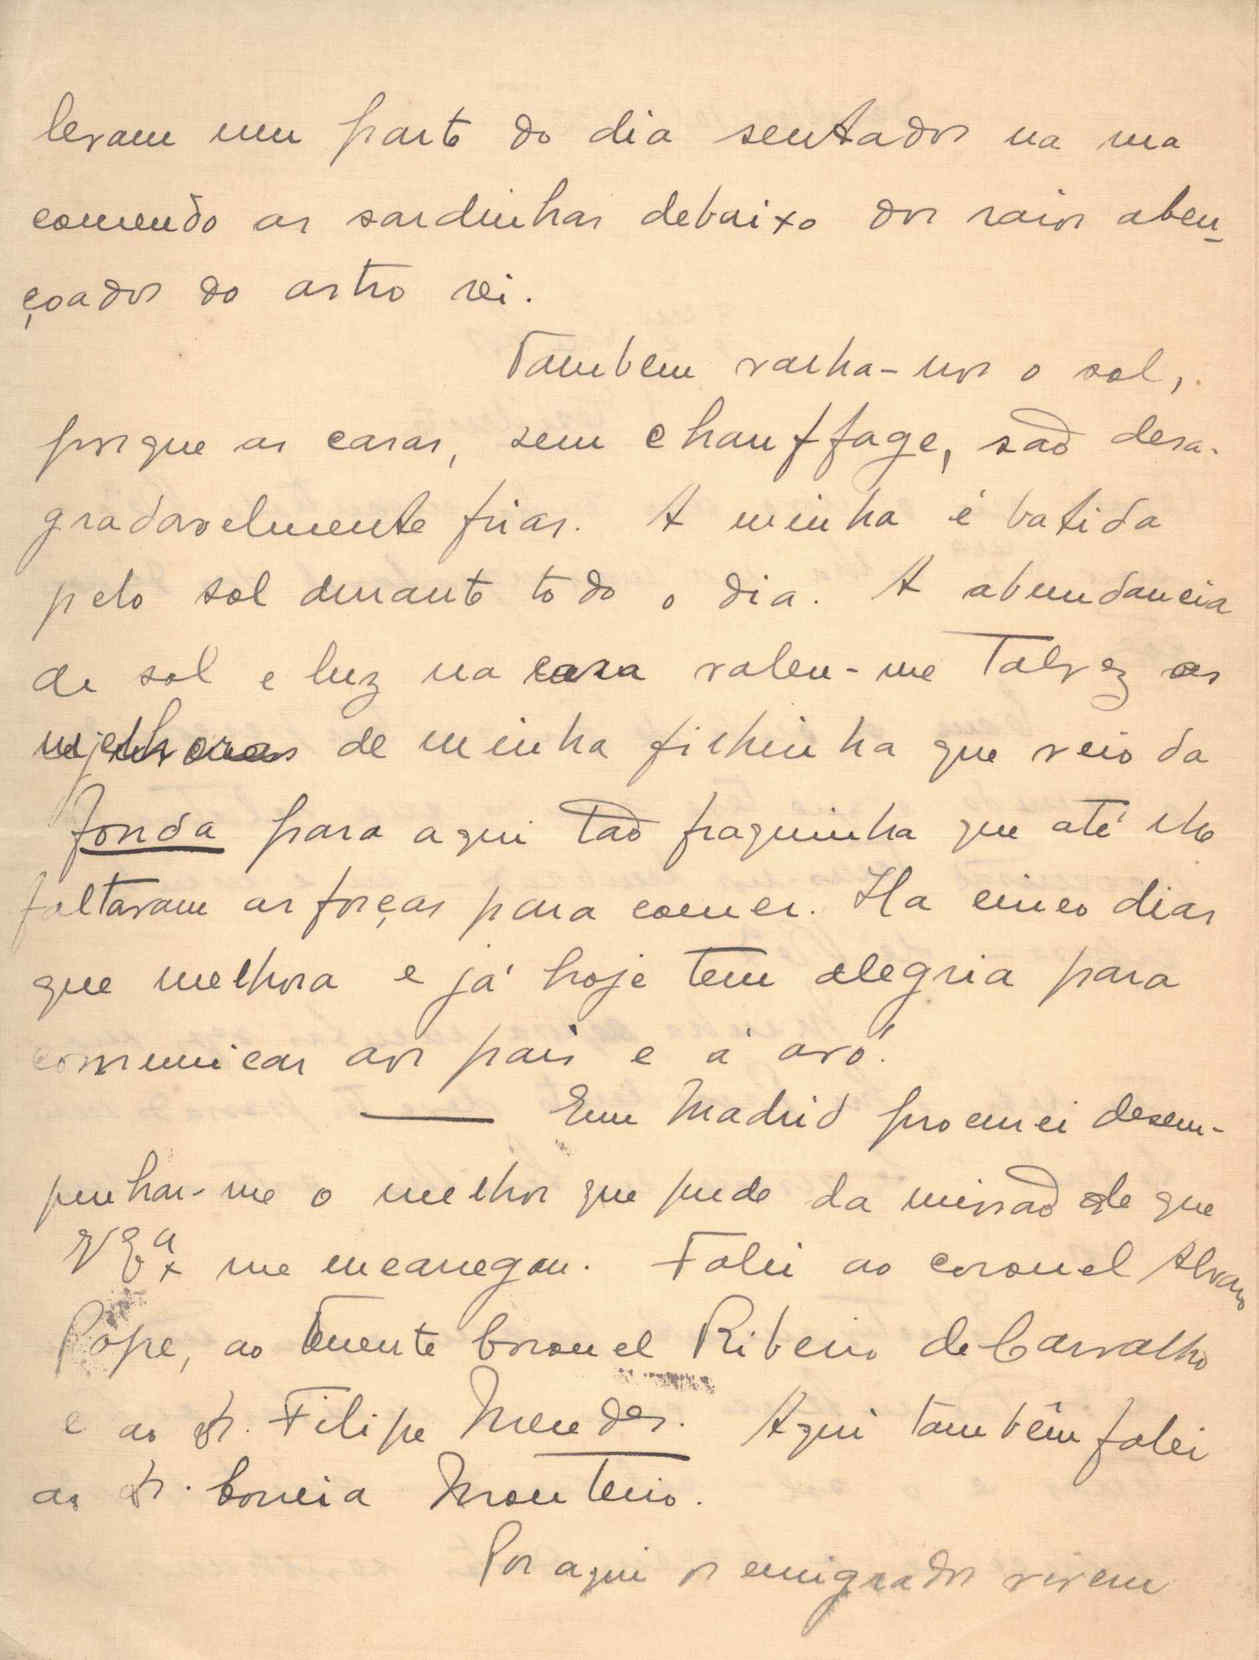 levam um parte do dia sentados na rua
comendo as sardinhas debaixo dos raios aben-
çoados do astro rei.
Tambem valha-nos o sol,
porque as casas, sem chauffage, são desa-
gradavelmente frias. A minha é batida
pelo sol durante todo o dia. A abundancia
de sol e luz na casa valeu-me talvez as
melhoras de minha filhinha que veio da
fonda para aqui tão fraquinha que até lhe
faltavam as forças para comer. Ha cinco dias
que melhora e já hoje tem alegria para
comunicar aos pais e á avó.
— Em Madrid procurei desem-
penhar-me o melhor que pude da missão de que
V Exª me encarregou. Falei ao coronel Alvaro
Pope, ao tenente coronel Ribeiro de Carvalho
e ao dr. Filipe Mendes. Aqui tambêm falei
ao dr. Correia Monteiro.
Por aqui os emigrados vivem